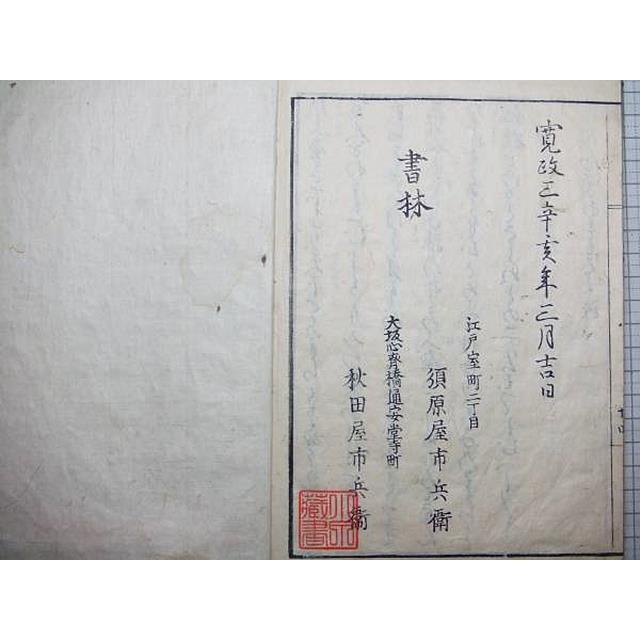 寛政三辛亥年三月吉日
書林
江戸室町二丁目
須原屋市兵衛
大坂心斎橋通安堂寺町
秋田屋市兵衛
藏書
十四